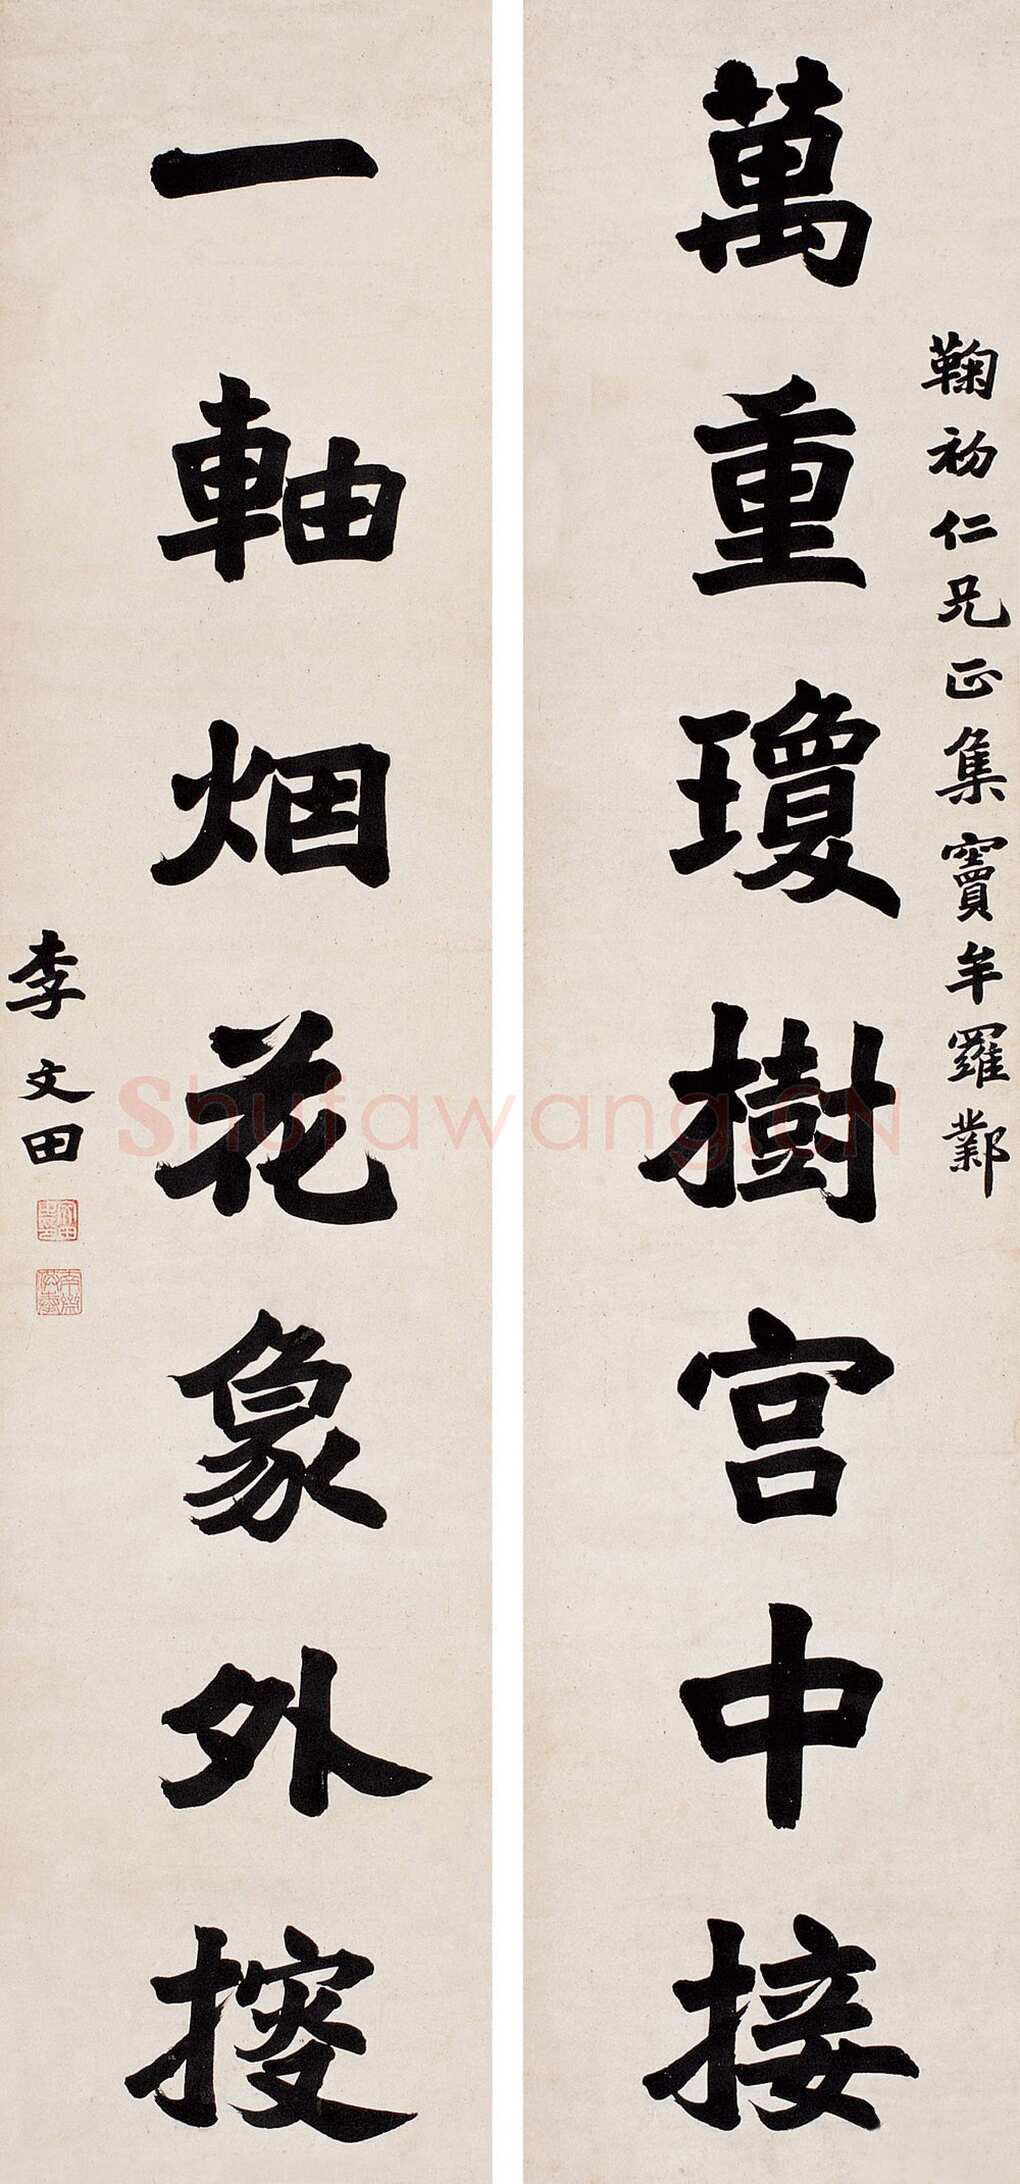 萬重瓊樹宫中接
鞠初仁兄正集竇牟羅鄴
一軸烟花象外搜
李文田
Shufawang.CN